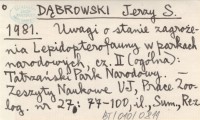 DĄBROWSKI Jerzy S.
1981. Uwagi o stanie zagroże-
nia Lepidopterofauny w parkach
narodowych, cz. II (ogólna):
Tatrzański Park Narodowy. —
Zeszyty Naukowe UJ, Prace Zoo-
log. nr 27: 77-100, il., Sum., Rez